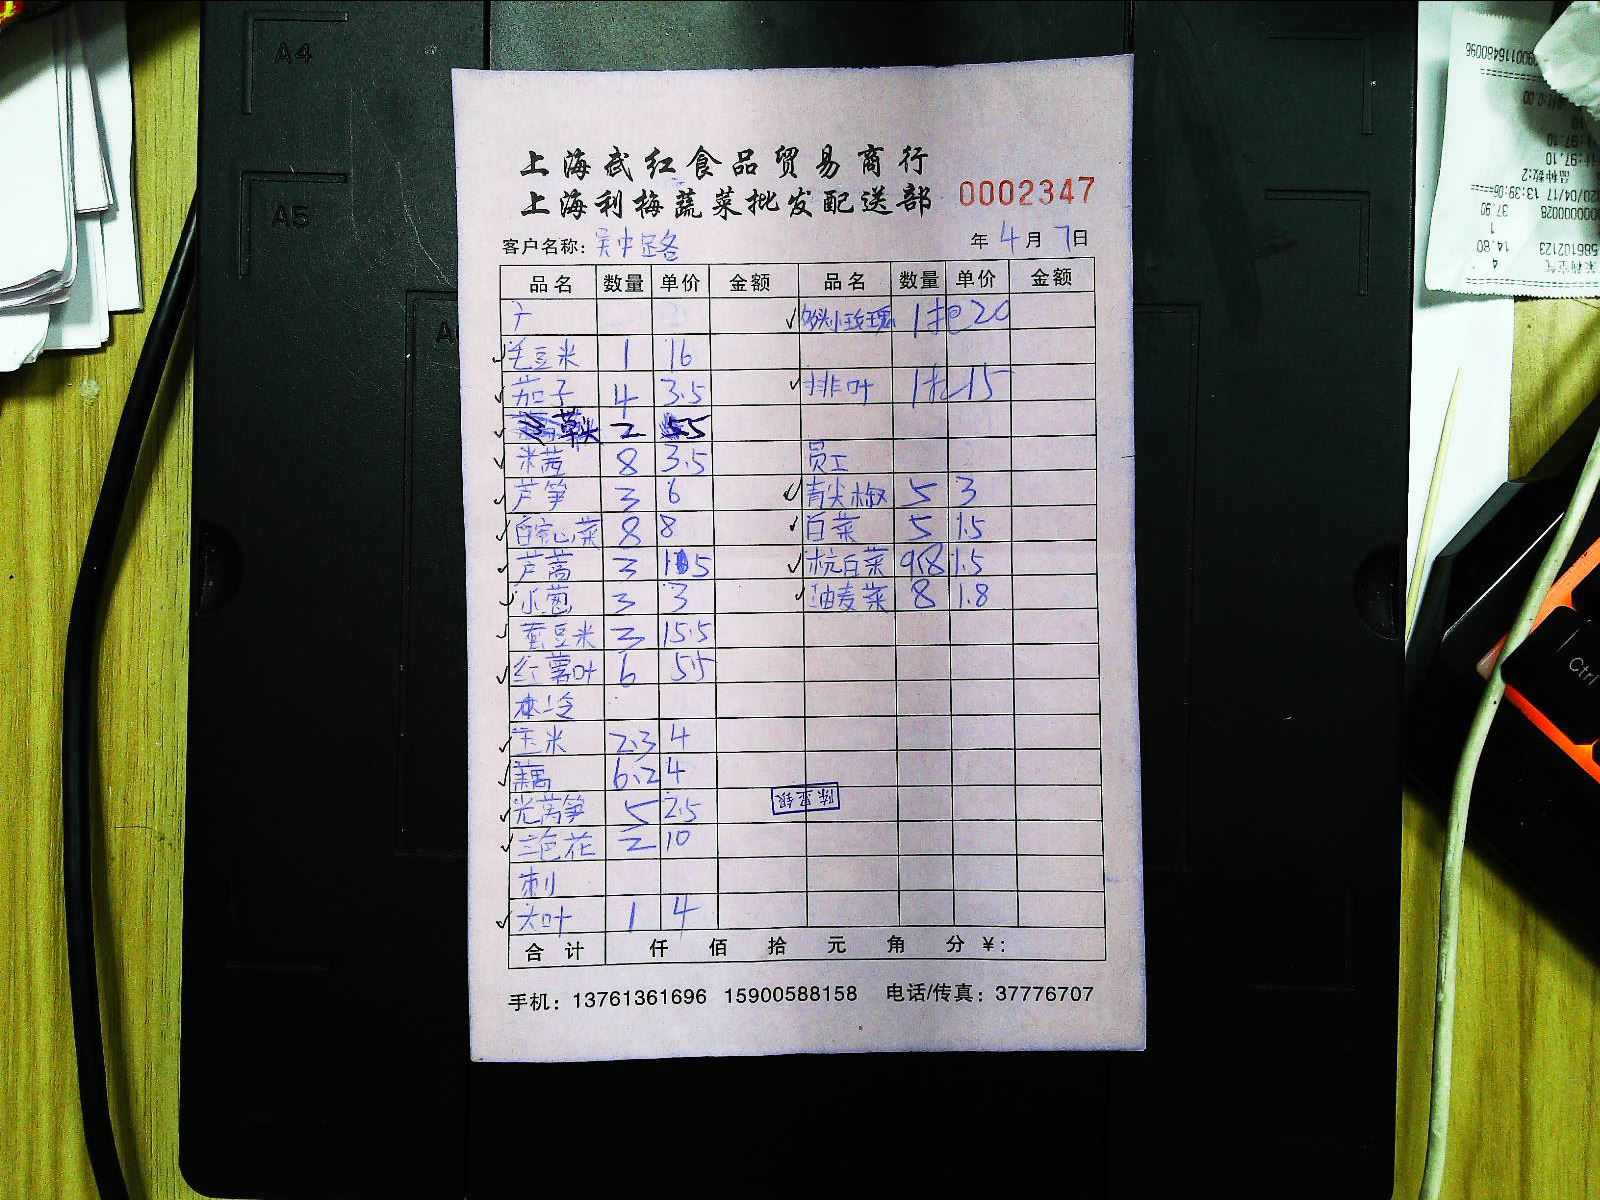 A4
A5
上海武红食品贸易商行
上海利梅蔬菜批发配送部 0002347
客户名称: 年 4 月 7 日
品名 数量 单价 金额 品名 数量 单价 金额
小玫瑰 1扎 20
毛豆米 1 16
茄子 4 3.5 排叶 1扎 15
草头 2
米苋 8 3.5 员工
芦笋 3 6 青尖椒 5 3
心菜 8 8 白菜 5 1.5
芦蒿 3 杭白菜 9.8 1.5
小葱 3 3 油麦菜 8 1.8
蚕豆米 3 15.5
红薯叶 6 5.5
玉米 2.3 4
藕 6.2 4
光莴笋 5 2.5
三色花 2 10
刺
大叶 1 4
合计 仟 佰 拾 元 角 分 ¥:
手机: 13761361696 15900588158 电话/传真: 37776707
Ctrl